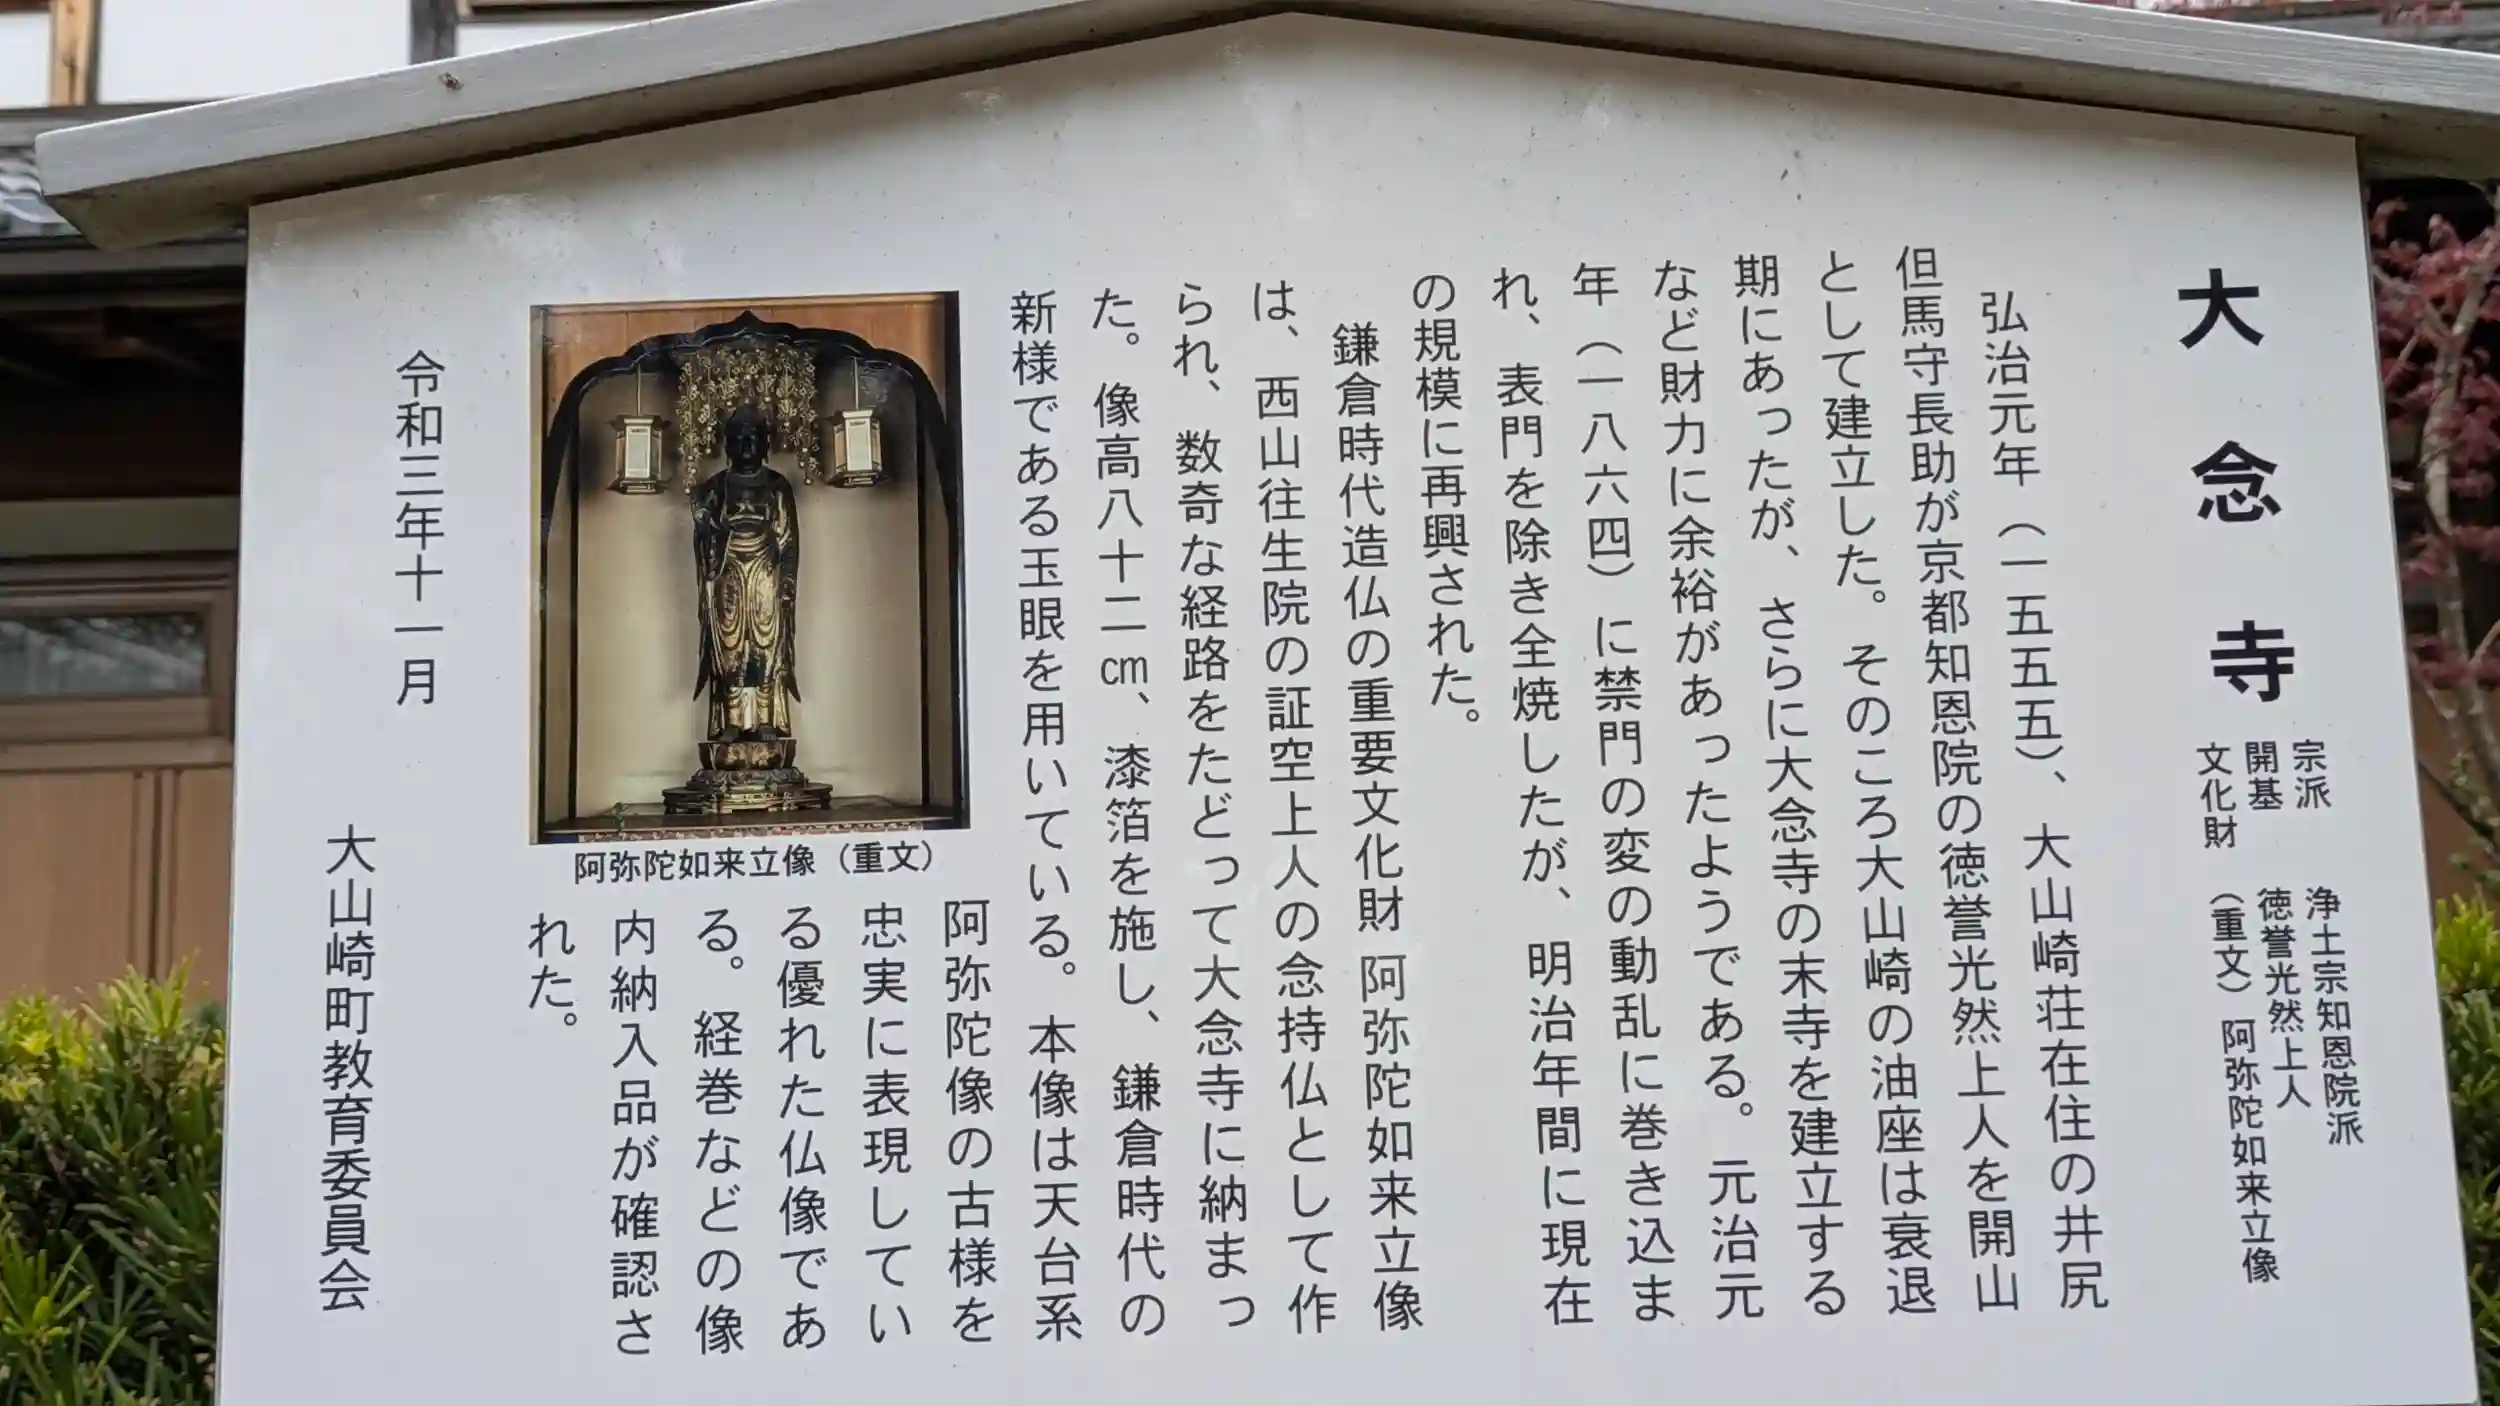 大念寺
宗派　浄土宗知恩院派
開基　徳誉光然上人
文化財　（重文）阿弥陀如来立像
弘治元年（一五五五）、大山崎荘在住の井尻
但馬守長助が京都知恩院の徳誉光然上人を開山
として建立した。そのころ大山崎の油座は衰退
期にあったが、さらに大念寺の末寺を建立する
など財力に余裕があったようである。元治元
年（一八六四）に禁門の変の動乱に巻き込ま
れ、表門を除き全焼したが、明治年間に現在
の規模に再興された。
鎌倉時代造仏の重要文化財 阿弥陀如来立像
は、西山往生院の証空上人の念持仏として作
られ、数奇な経路をたどって大念寺に納まっ
た。像高八十二㎝、漆箔を施し、鎌倉時代の
新様である玉眼を用いている。本像は天台系
阿弥陀像の古様を
忠実に表現してい
る優れた仏像であ
る。経巻などの像
内納入品が確認さ
れた。
阿弥陀如来立像（重文）
令和三年十一月
大山崎町教育委員会